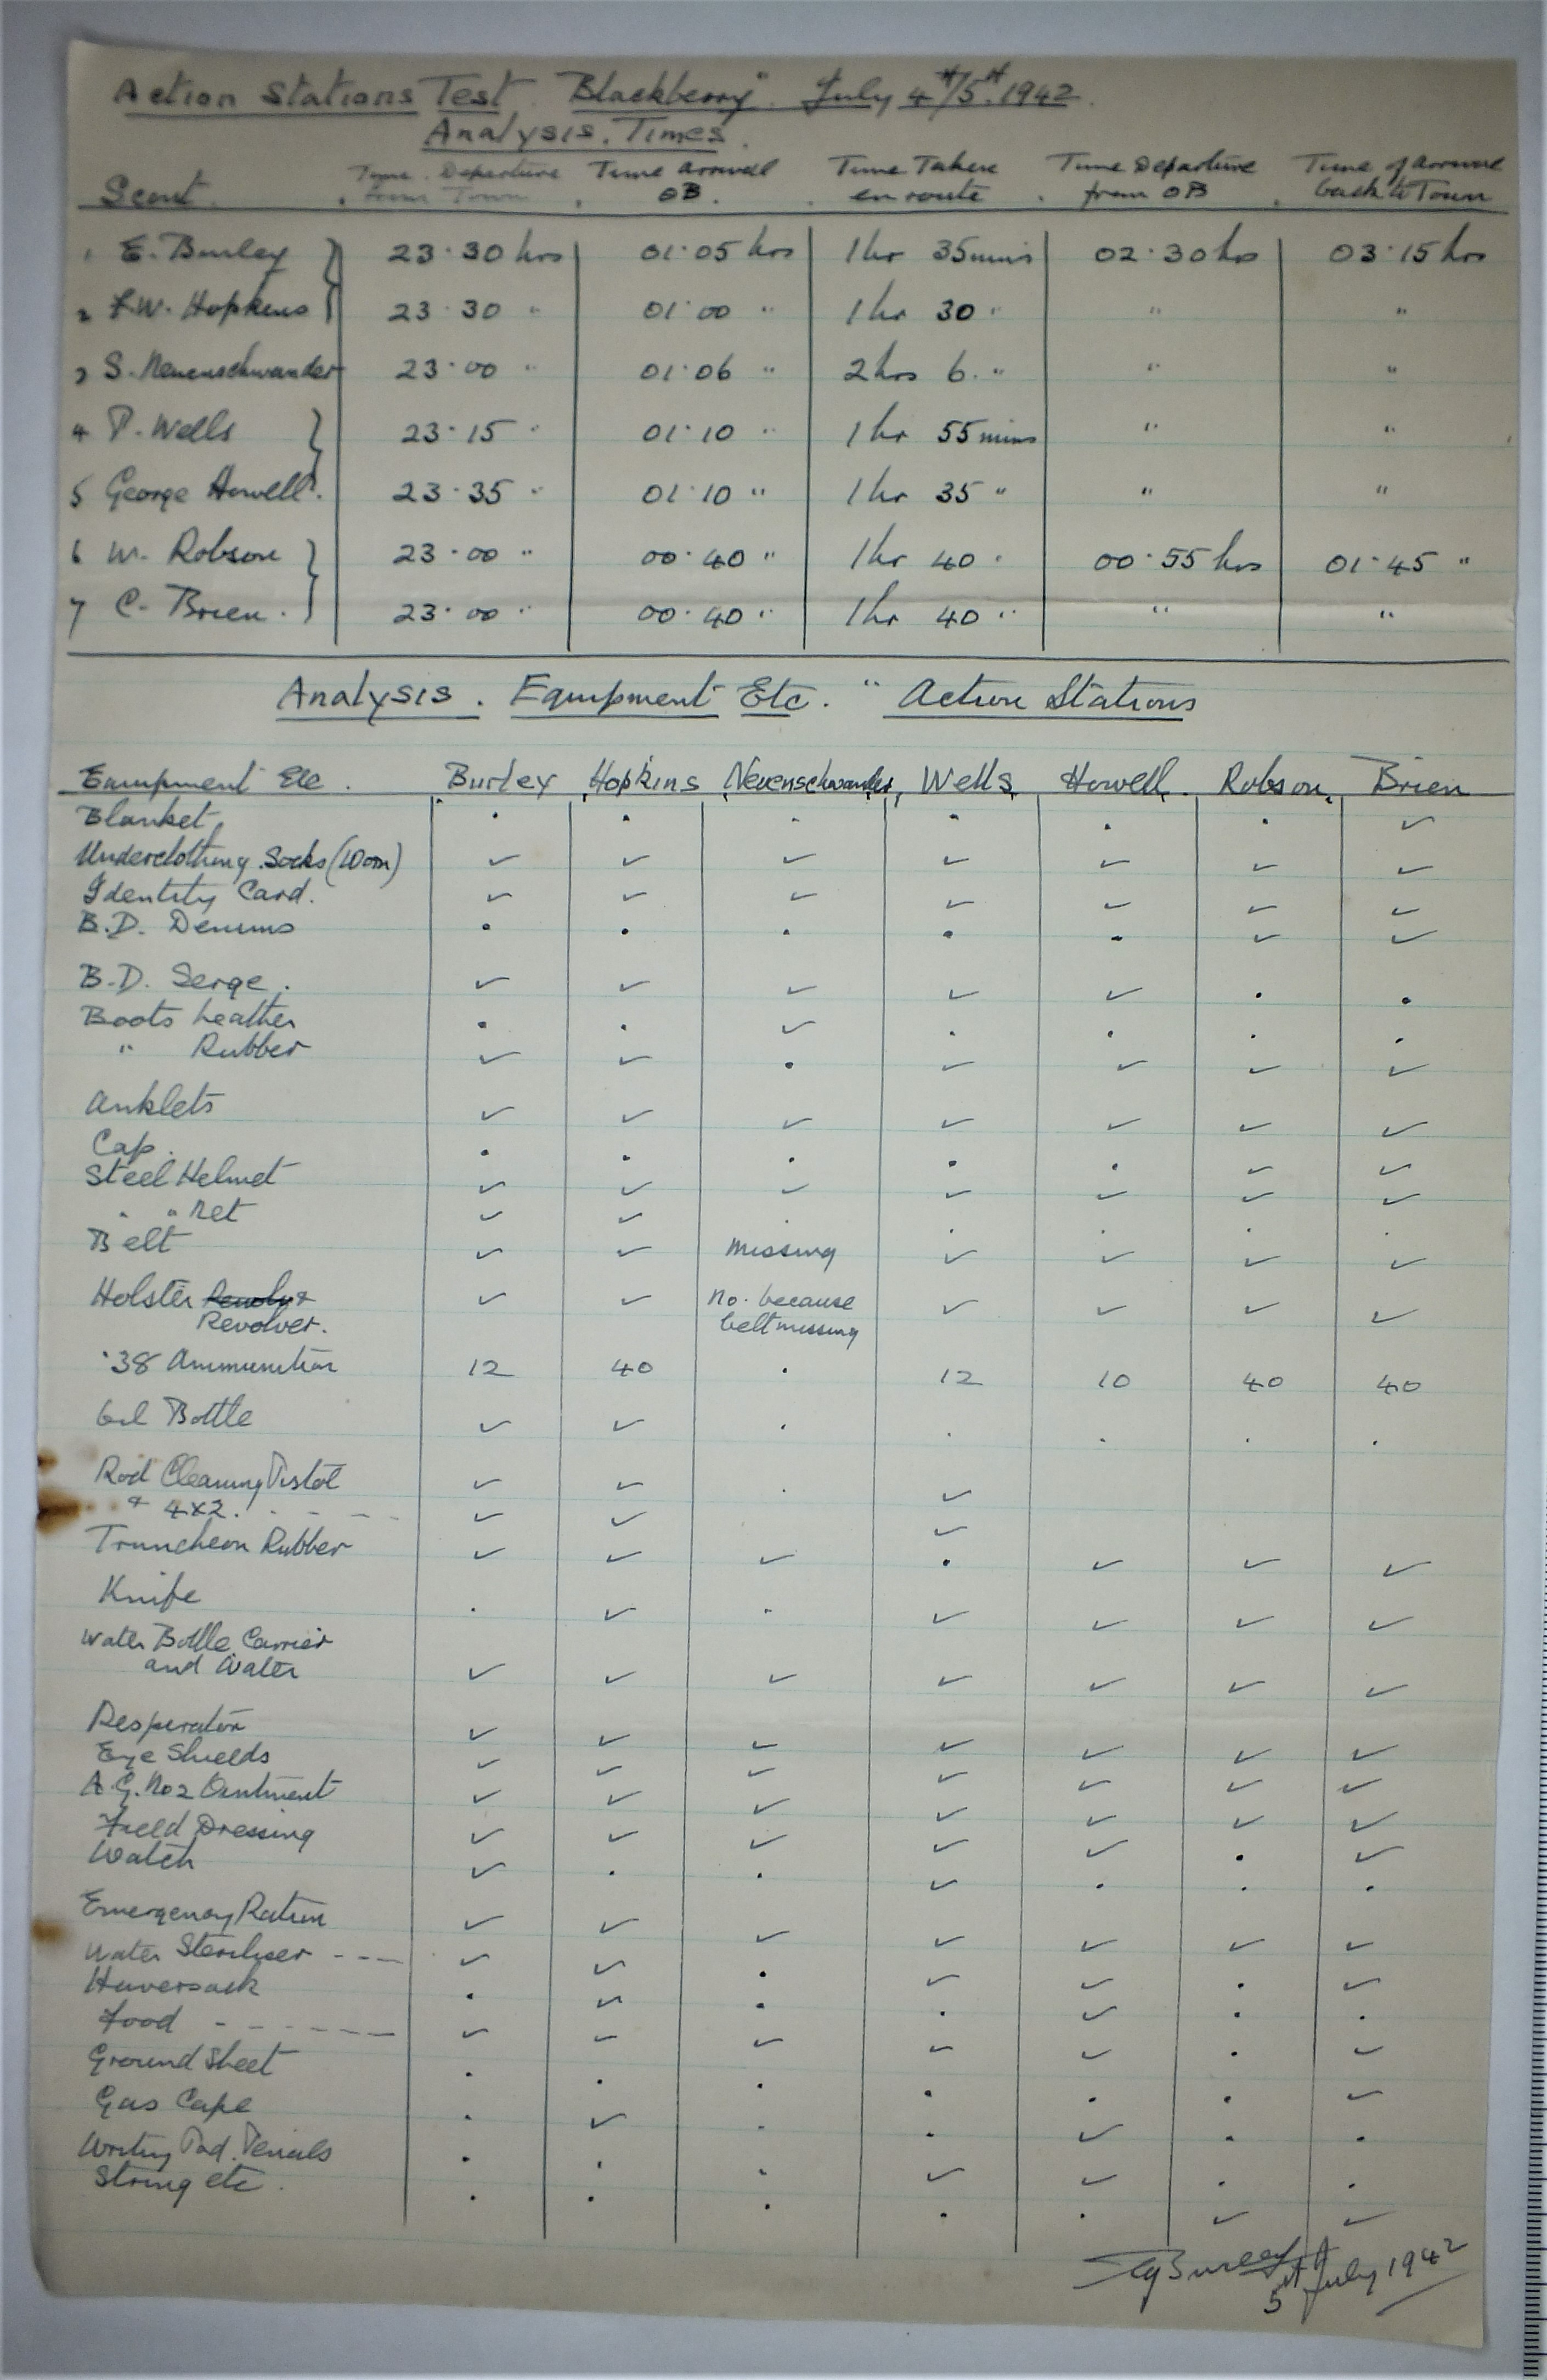 Action Stations Test "Blackberry" July 4th/5th 1942.
Analysis. Times.
Scout. Time Departure from Town. Time Arrival OB. Time Taken en route. Time Departure from OB. Time of Arrival back to Town
1 E. Burley } 23·30 hrs 01·05 hrs 1 hr 35 mins 02·30 hrs 03·15 hrs
2 F.W. Hopkins } 23·30 " 01·00 " 1 hr 30 " " "
3 S. Neuenschwander 23·00 " 01·06 " 2 hrs 6 " " "
4 P. Wells } 23·15 " 01·10 " 1 hr 55 mins " "
5 George Howell } 23·35 " 01·10 " 1 hr 35 " " "
6 W. Robson } 23·00 " 00·40 " 1 hr 40 " 00·55 hrs 01·45 "
7 C. Brien. } 23·00 " 00·40 " 1 hr 40 " " "
Analysis. Equipment Etc. "Action Stations
Equipment Etc. Burley Hopkins Neuenschwander Wells Howell Robson Brien
Blanket . . . . . . ✓
Underclothing Socks (Worn) ✓ ✓ ✓ ✓ ✓ ✓ ✓
Identity Card. ✓ ✓ ✓ ✓ ✓ ✓ ✓
B.D. Denims . . . . . ✓ ✓
B.D. Serge. ✓ ✓ ✓ ✓ ✓ . .
Boots Leather . . ✓ . . . .
" Rubber ✓ ✓ . ✓ ✓ ✓ ✓
Anklets ✓ ✓ ✓ ✓ ✓ ✓ ✓
Cap. . . . . . ✓ ✓
Steel Helmet ✓ ✓ ✓ ✓ ✓ ✓ ✓
" " Net ✓ ✓ . . . . .
Belt ✓ ✓ Missing ✓ ✓ ✓ ✓
Holster Revolver ✓ ✓ No. because ✓ ✓ ✓ ✓
Revolver. belt missing
·38 Ammunition 12 40 . 12 10 40 40
Oil Bottle ✓ ✓ . . . . .
Rod Cleaning Pistol ✓ ✓ . ✓
& 4x2. ✓ ✓ ✓
Truncheon Rubber ✓ ✓ ✓ . ✓ ✓ ✓
Knife . ✓ . ✓ ✓ ✓ ✓
Water Bottle Carrier
and Water ✓ ✓ ✓ ✓ ✓ ✓ ✓
Resperator ✓ ✓ ✓ ✓ ✓ ✓ ✓
Eye Shields ✓ ✓ ✓ ✓ ✓ ✓ ✓
A.G. No 2 Ointment ✓ ✓ ✓ ✓ ✓ ✓ ✓
Field Dressing ✓ ✓ ✓ ✓ ✓ . ✓
Watch ✓ . . ✓ . . .
Emergency Ration ✓ ✓ ✓ ✓ ✓ ✓ ✓
Water Steriliser --- ✓ ✓ . ✓ ✓ . ✓
Haversack . ✓ . . ✓ . .
Food ------ ✓ ✓ ✓ ✓ ✓ . ✓
Ground Sheet . . . . . . ✓
Gas Cape . ✓ . . ✓ . .
Writing Pad. Pencils . . . ✓ ✓ . .
String etc. . . . . . ✓ ✓
Burley
5th July 1942